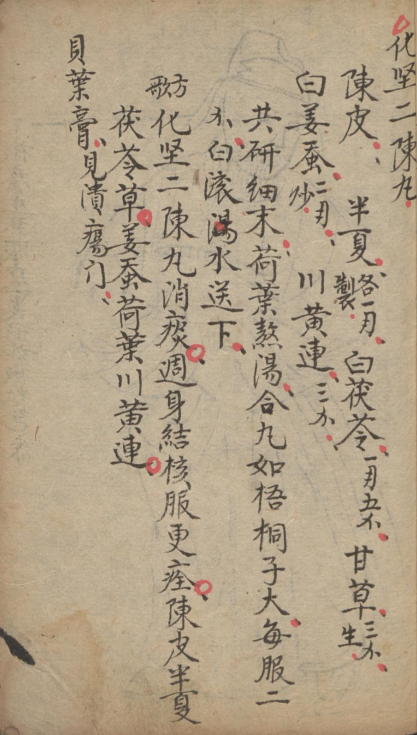 化坚二陳丸
陳皮 半夏各一刃製 白茯苓一刃五尒 甘草三尒生
白姜蚕二刃炒 川黄連三尒
共研细末荷葉熬湯合丸如梧桐子大每服二
尒白滚湯水送下
方歌 化坚二陳丸消痰週身結核服更痊陳皮半夏
茯苓草姜蚕荷葉川黄連
貝葉膏見潰瘍门